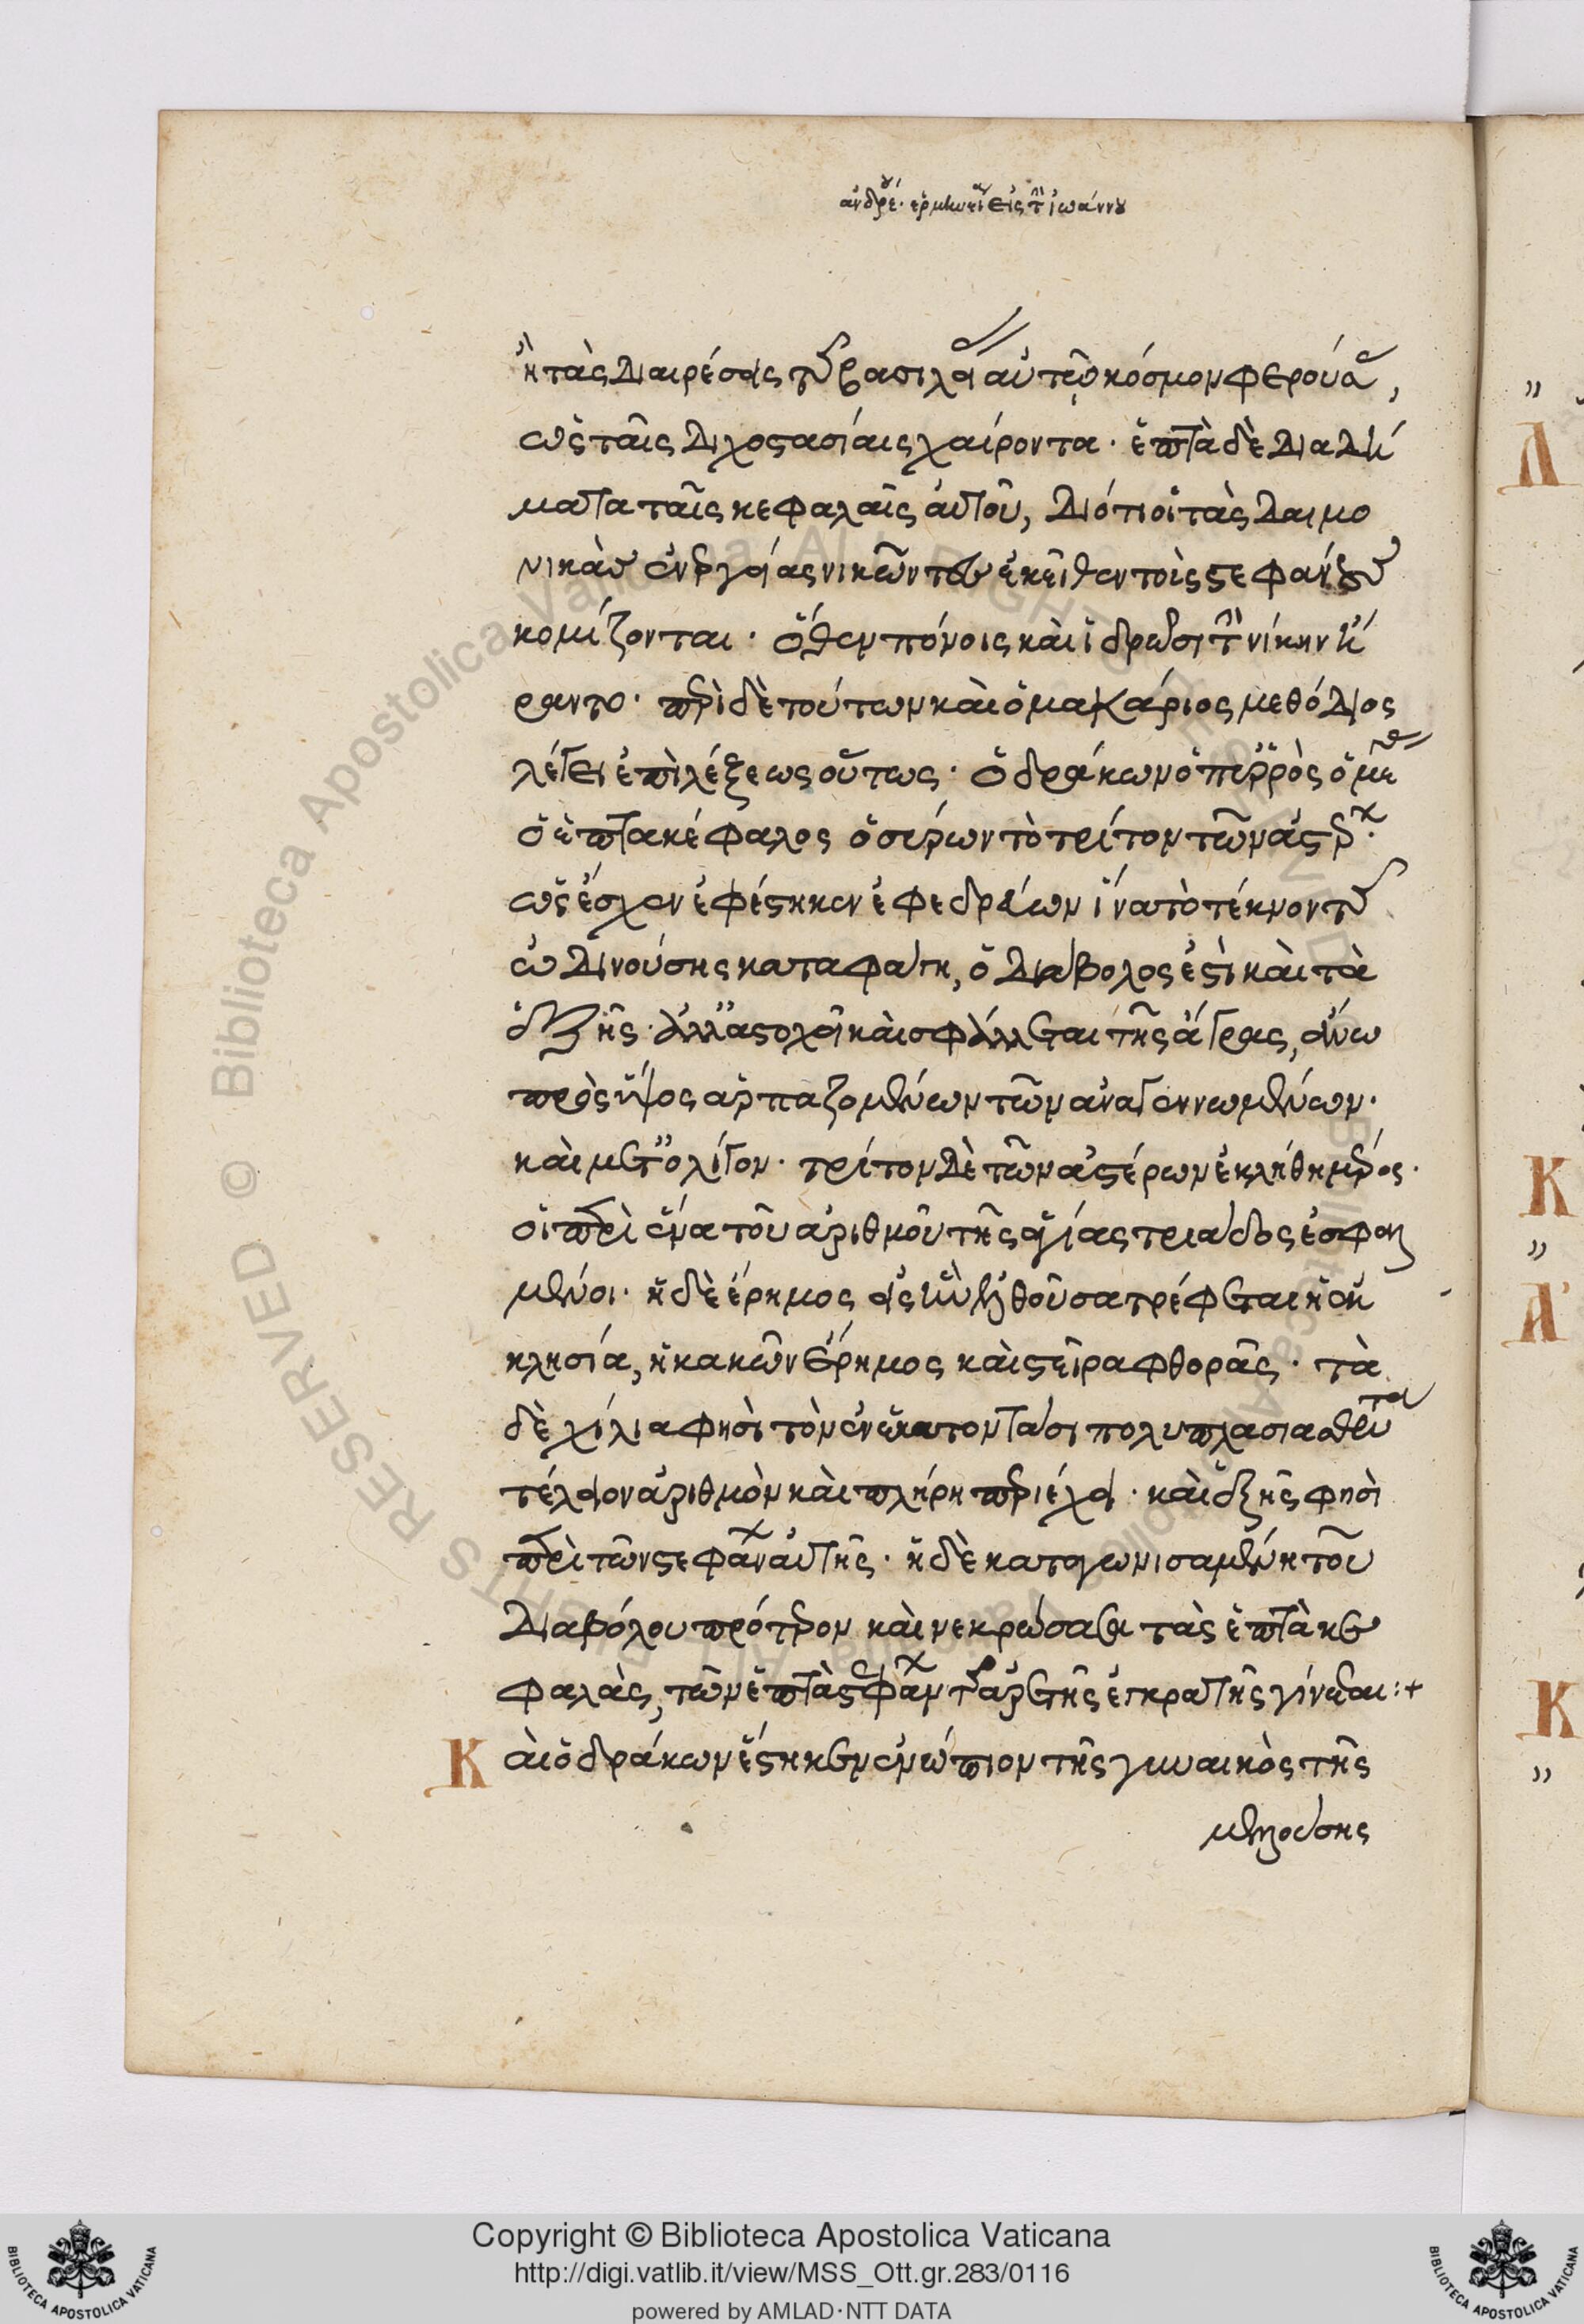 ἀνδρέου ἑρμηνεία εἰς τὴν ἰωάννου
ἢ τὰς διαιρέσεις τῶν βασιλειῶν αὐτοῦ κόσμον φερούσας,
ὡς ταῖς διχοστασίαις χαίροντα· ἑπτὰ δὲ διαδή
ματα ταῖς κεφαλαῖς αὐτοῦ, διότι οἱ τὰς δαιμο
νικὰς ἐνεργείας νικῶντες ἐκεῖθεν τοὺς στεφάνους
κομίζονται· ὅθεν πόνοις καὶ ἱδρῶσι τὴν νίκην ἤ
ραντο· περὶ δὲ τούτων καὶ ὁ μακάριος μεθόδιος
λέγει ἐπὶ λέξεως οὕτως· ὁ δράκων ὁ πυρρὸς ὁ μέγας
ὁ ἑπτακέφαλος ὁ σύρων τὸ τρίτον τῶν ἀστέρων·
ὡς ἔσχεν ἐφέστηκεν ἐφεδρεύων ἵνα τὸ τέκνον τῆς
ὠδινούσης καταφάγη, ὁ διάβολος ἐστὶ καὶ τὰ
ἑξῆς· ἀλλ' ἀστοχεῖ καὶ σφάλλεται τῆς ἄγρας, ἄνω
πρὸς ὕψος ἁρπαζομένων τῶν ἀναγεννωμένων·
καὶ μετ' ὀλίγον· τρίτον δὲ τῶν ἀστέρων ἐκλήθη μέρος·
οἱ περὶ ἕνα τοῦ ἀριθμοῦ τῆς ἁγίας τριάδος ἐσφαλ
μένοι· ἡ δὲ ἔρημος εἰς ἣν ἐλθοῦσα τρέφεται ἡ ἐκ
κλησία, ἡ κακῶν ἔρημος καὶ στεῖρα φθορᾶς· τὰ
δὲ χίλια φησὶ τὸν ἐν ἑκατοντάσι πολυπλασιασθέντα
τέλειον ἀριθμὸν καὶ πλήρη περιέχει· καὶ ἑξῆς φησὶ
περὶ τῶν στεφάνων αὐτῆς· ἡ δὲ καταγωνισαμένη τοῦ
διαβόλου πρότερον καὶ νεκρώσασα τὰς ἑπτὰ κε
φαλὰς, τῶν ἑπτὰ στεφάνων τῆς ἀρετῆς ἐγκρατὴς γίνεται:+
Καὶ ὁ δράκων ἕστηκεν ἐνώπιον τῆς γυναικὸς τῆς
μελλούσης
Λ
Κ
Α
Κ
© Biblioteca Apostolica Vaticana ALL RIGHTS RESERVED
Copyright © Biblioteca Apostolica Vaticana
http://digi.vatlib.it/view/MSS_Ott.gr.283/0116
powered by AMLAD·NTT DATA
BIBLIOTECA APOSTOLICA VATICANA
BIBLIOTECA APOSTOLICA VATICANA